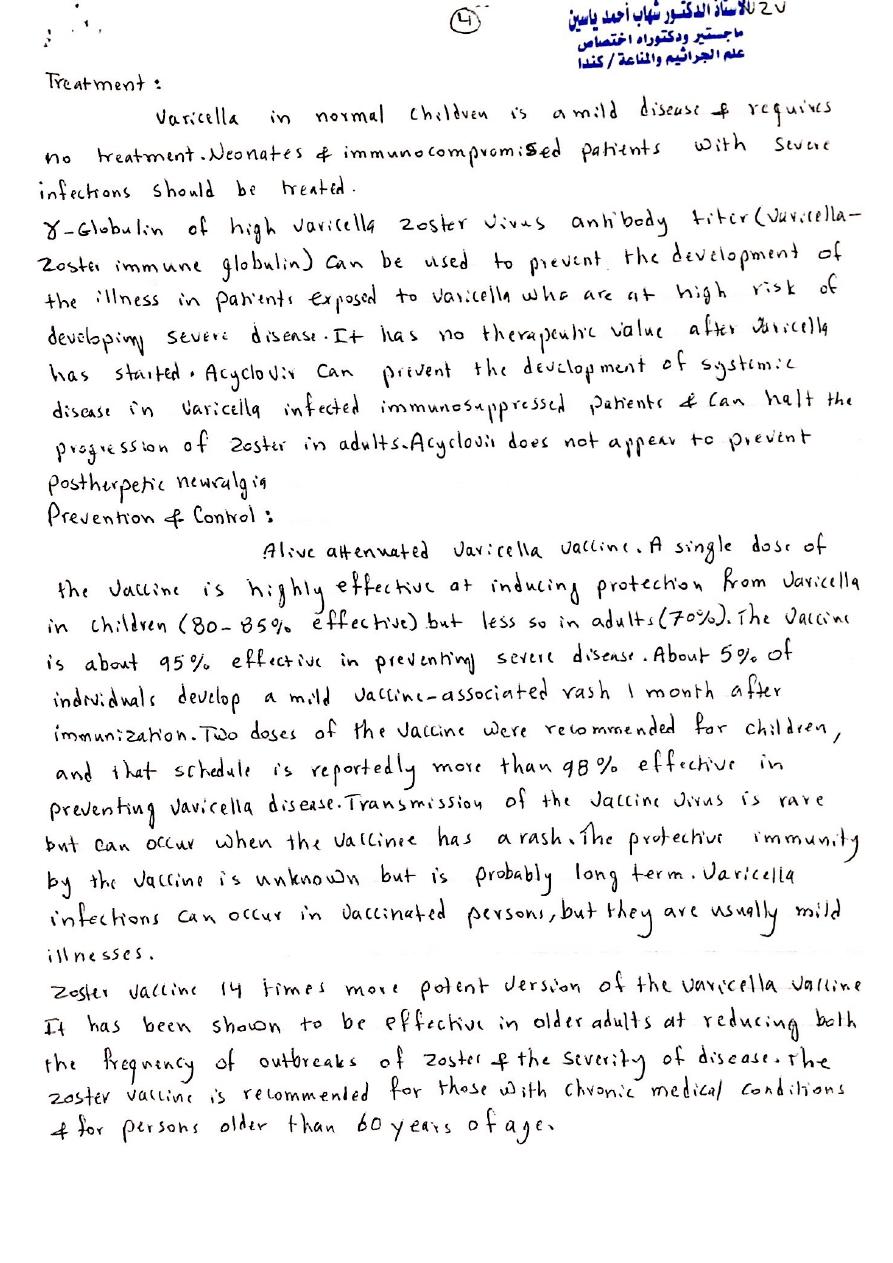 4
الأستاذ الدكتور شهاب أحمد ياسين
ماجستير ودكتوراه اختصاص
علم الجراثيم والمناعة / كندا
Treatment :
Varicella in normal children is a mild disease & requires
no treatment. Neonates & immunocompromised patients with severe
infections should be treated.
γ-Globulin of high varicella zoster virus antibody titer (Varicella-
Zoster immune globulin) can be used to prevent the development of
the illness in patients exposed to varicella who are at high risk of
developing severe disease. It has no therapeutic value after varicella
has started. Acyclovir can prevent the development of systemic
disease in varicella infected immunosuppressed patients & can halt the
progression of zoster in adults. Acyclovir does not appear to prevent
Postherpetic neuralgia
Prevention & Control :
Alive attenuated varicella vaccine. A single dose of
the vaccine is highly effective at inducing protection from varicella
in children (80-85% effective) but less so in adults (70%). The vaccine
is about 95% effective in preventing severe disease. About 5% of
individuals develop a mild vaccine-associated rash 1 month after
immunization. Two doses of the vaccine were recommended for children,
and that schedule is reportedly more than 98% effective in
preventing varicella disease. Transmission of the vaccine virus is rare
but can occur when the vaccinee has a rash. The protective immunity
by the vaccine is unknown but is probably long term. Varicella
infections can occur in vaccinated persons, but they are usually mild
illnesses.
Zoster vaccine 14 times more potent version of the varicella vaccine
It has been shown to be effective in older adults at reducing both
the frequency of outbreaks of zoster & the severity of disease. The
zoster vaccine is recommended for those with chronic medical conditions
& for persons older than 60 years of age.